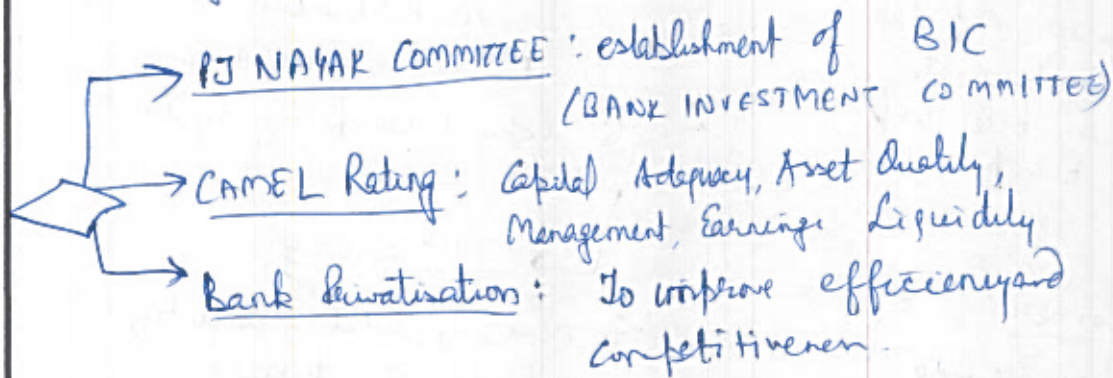 PJ NAYAK COMMITTEE : establishment of BIC
(BANK INVESTMENT COMMITTEE)
CAMEL Rating : Capital Adequacy, Asset Quality,
Management, Earnings Liquidity
Bank Privatisation : To improve efficiency and
competitiveness.